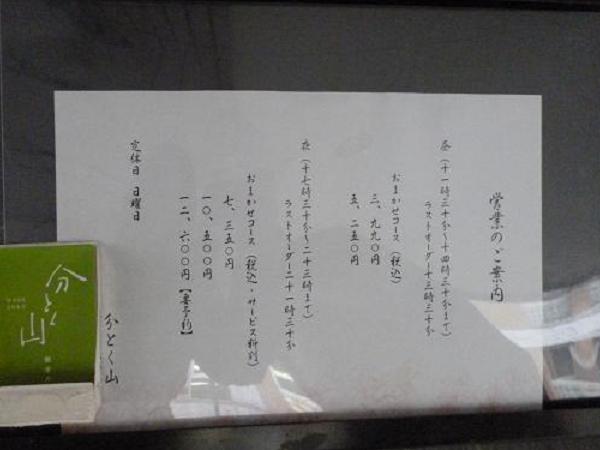 営業のご案内
昼（十一時三十分～十四時三十分まで）
ラストオーダー十三時三十分
おまかせコース（税込）
三、九九〇円
五、二五〇円
夜（十七時三十分～二十三時まで）
ラストオーダー二十一時三十分
おまかせコース（税込・サービス料別）
七、三五〇円
一〇、五〇〇円
一二、六〇〇円【要予約】
定休日 日曜日
分とく山
分とく山